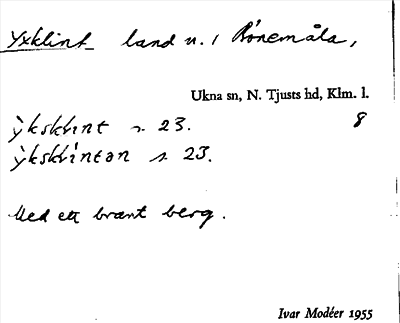 Yxklint land u. / Rönemåla,
Ukna sn, N. Tjusts hd, Klm. l.
ỳkskḷint s. 23. 8
ỳkskḷintən s. 23.
Med ett brant berg.
Ivar Modéer 1955